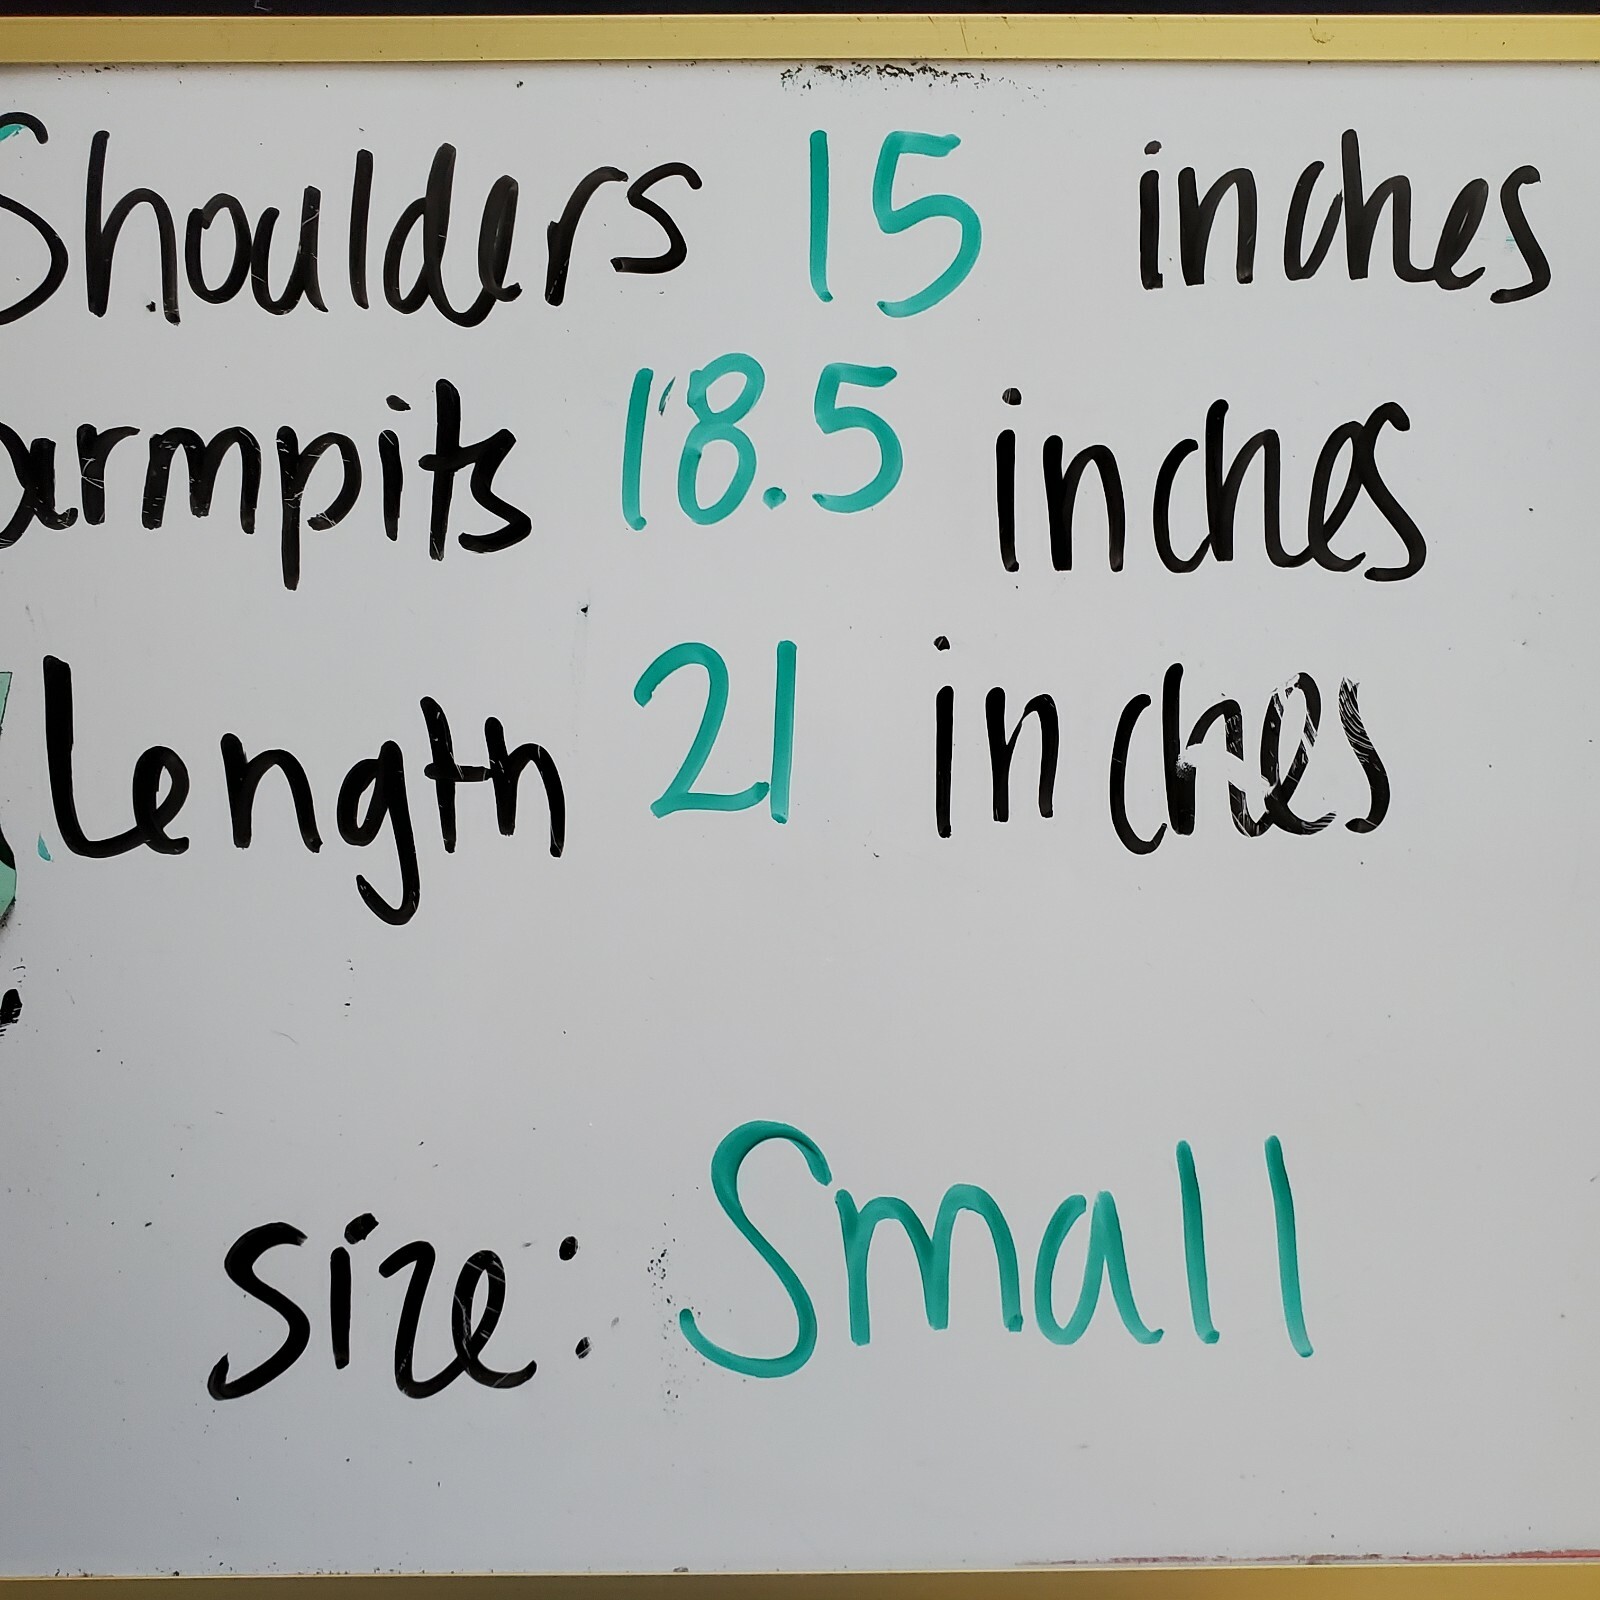 Shoulders 15 inches
armpits 18.5 inches
length 21 inches
size: Small